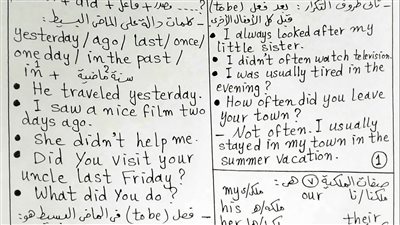 ? .... + مصدر + فاعل + did +
- كلمات دالة على الماضى البسيط :
yesterday / ago / last / once /
one day / in the past /
in + سنة ماضية
• He traveled yesterday.
• I saw a nice film two
days ago.
• She didn't help me.
• Did You visit your
uncle last Friday?
• What did You do?
- فعل (to be) فى الماضى البسيط هو:
- تأتى ظروف التكرار : بعد فعل (to be)
قبل كل الأفعال الأخرى
• I always looked after my
little sister.
• I didn't often watch television.
• I was usually tired in the
evening?
• How often did you leave
your town?
- Not often. I usually
stayed in my town in the
summer vacation.
1
صفات الملكية (٧) هى :
my ملكى/ى our ملكنا/نا
his ملكه/ه
her ملكها/ها their